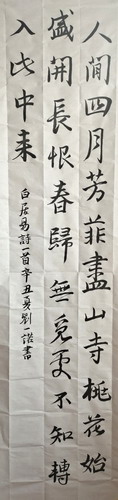 人間四月芳菲盡山寺桃花始
盛開長恨春歸無覓處不知轉
入此中来
白居易詩一首辛丑夏劉一諾書